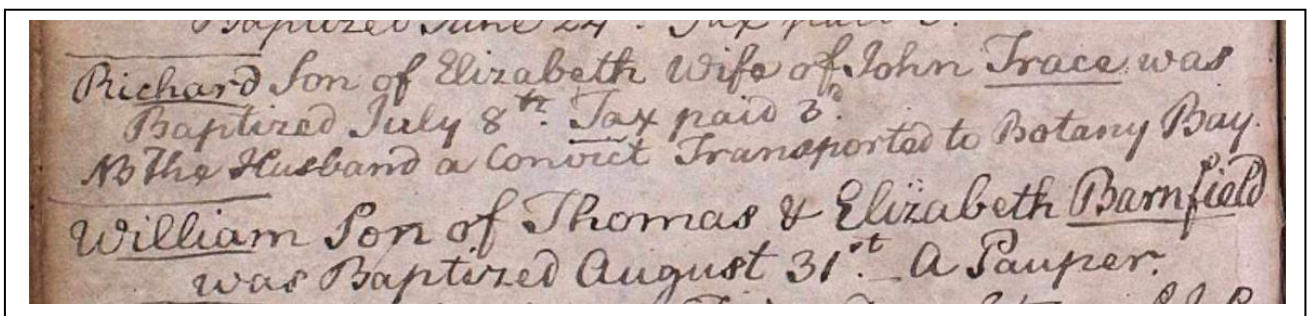 Baptized June 24th. Tax paid 3d.
Richard Son of Elizabeth Wife of John Trace was
Baptized July 8th. Tax paid 3d.
NB The Husband a Convict Transported to Botany Bay.
William Son of Thomas & Elizabeth Barnfield
was Baptized August 31st. A Pauper.